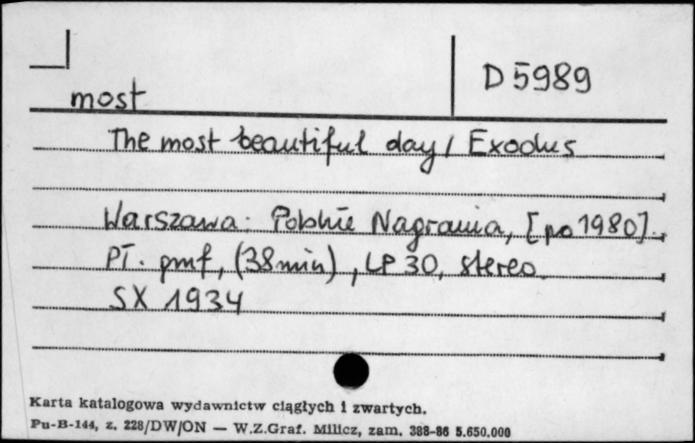 D 5989
most
The most beautiful day / Exodus
Warszawa: Polskie Nagrania, [po 1980].
Pł. gmf, (38 min), LP 30, stereo
SX 1934
Karta katalogowa wydawnictw ciągłych i zwartych.
Pu-B-144, z. 228/DW/ON — W.Z.Graf. Milicz, zam. 388-86 5.650.000